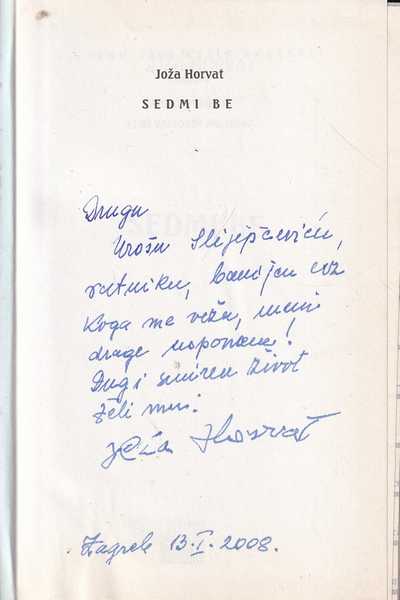 Joža Horvat
SEDMI BE
Drugu
Urošu Slijepčeviću,
ratniku, banijcu uz
koga me vežu, meni
drage uspomene!
Dug i smiren život
želi mu:
Joža Horvat
Zagreb 13.I.2008.